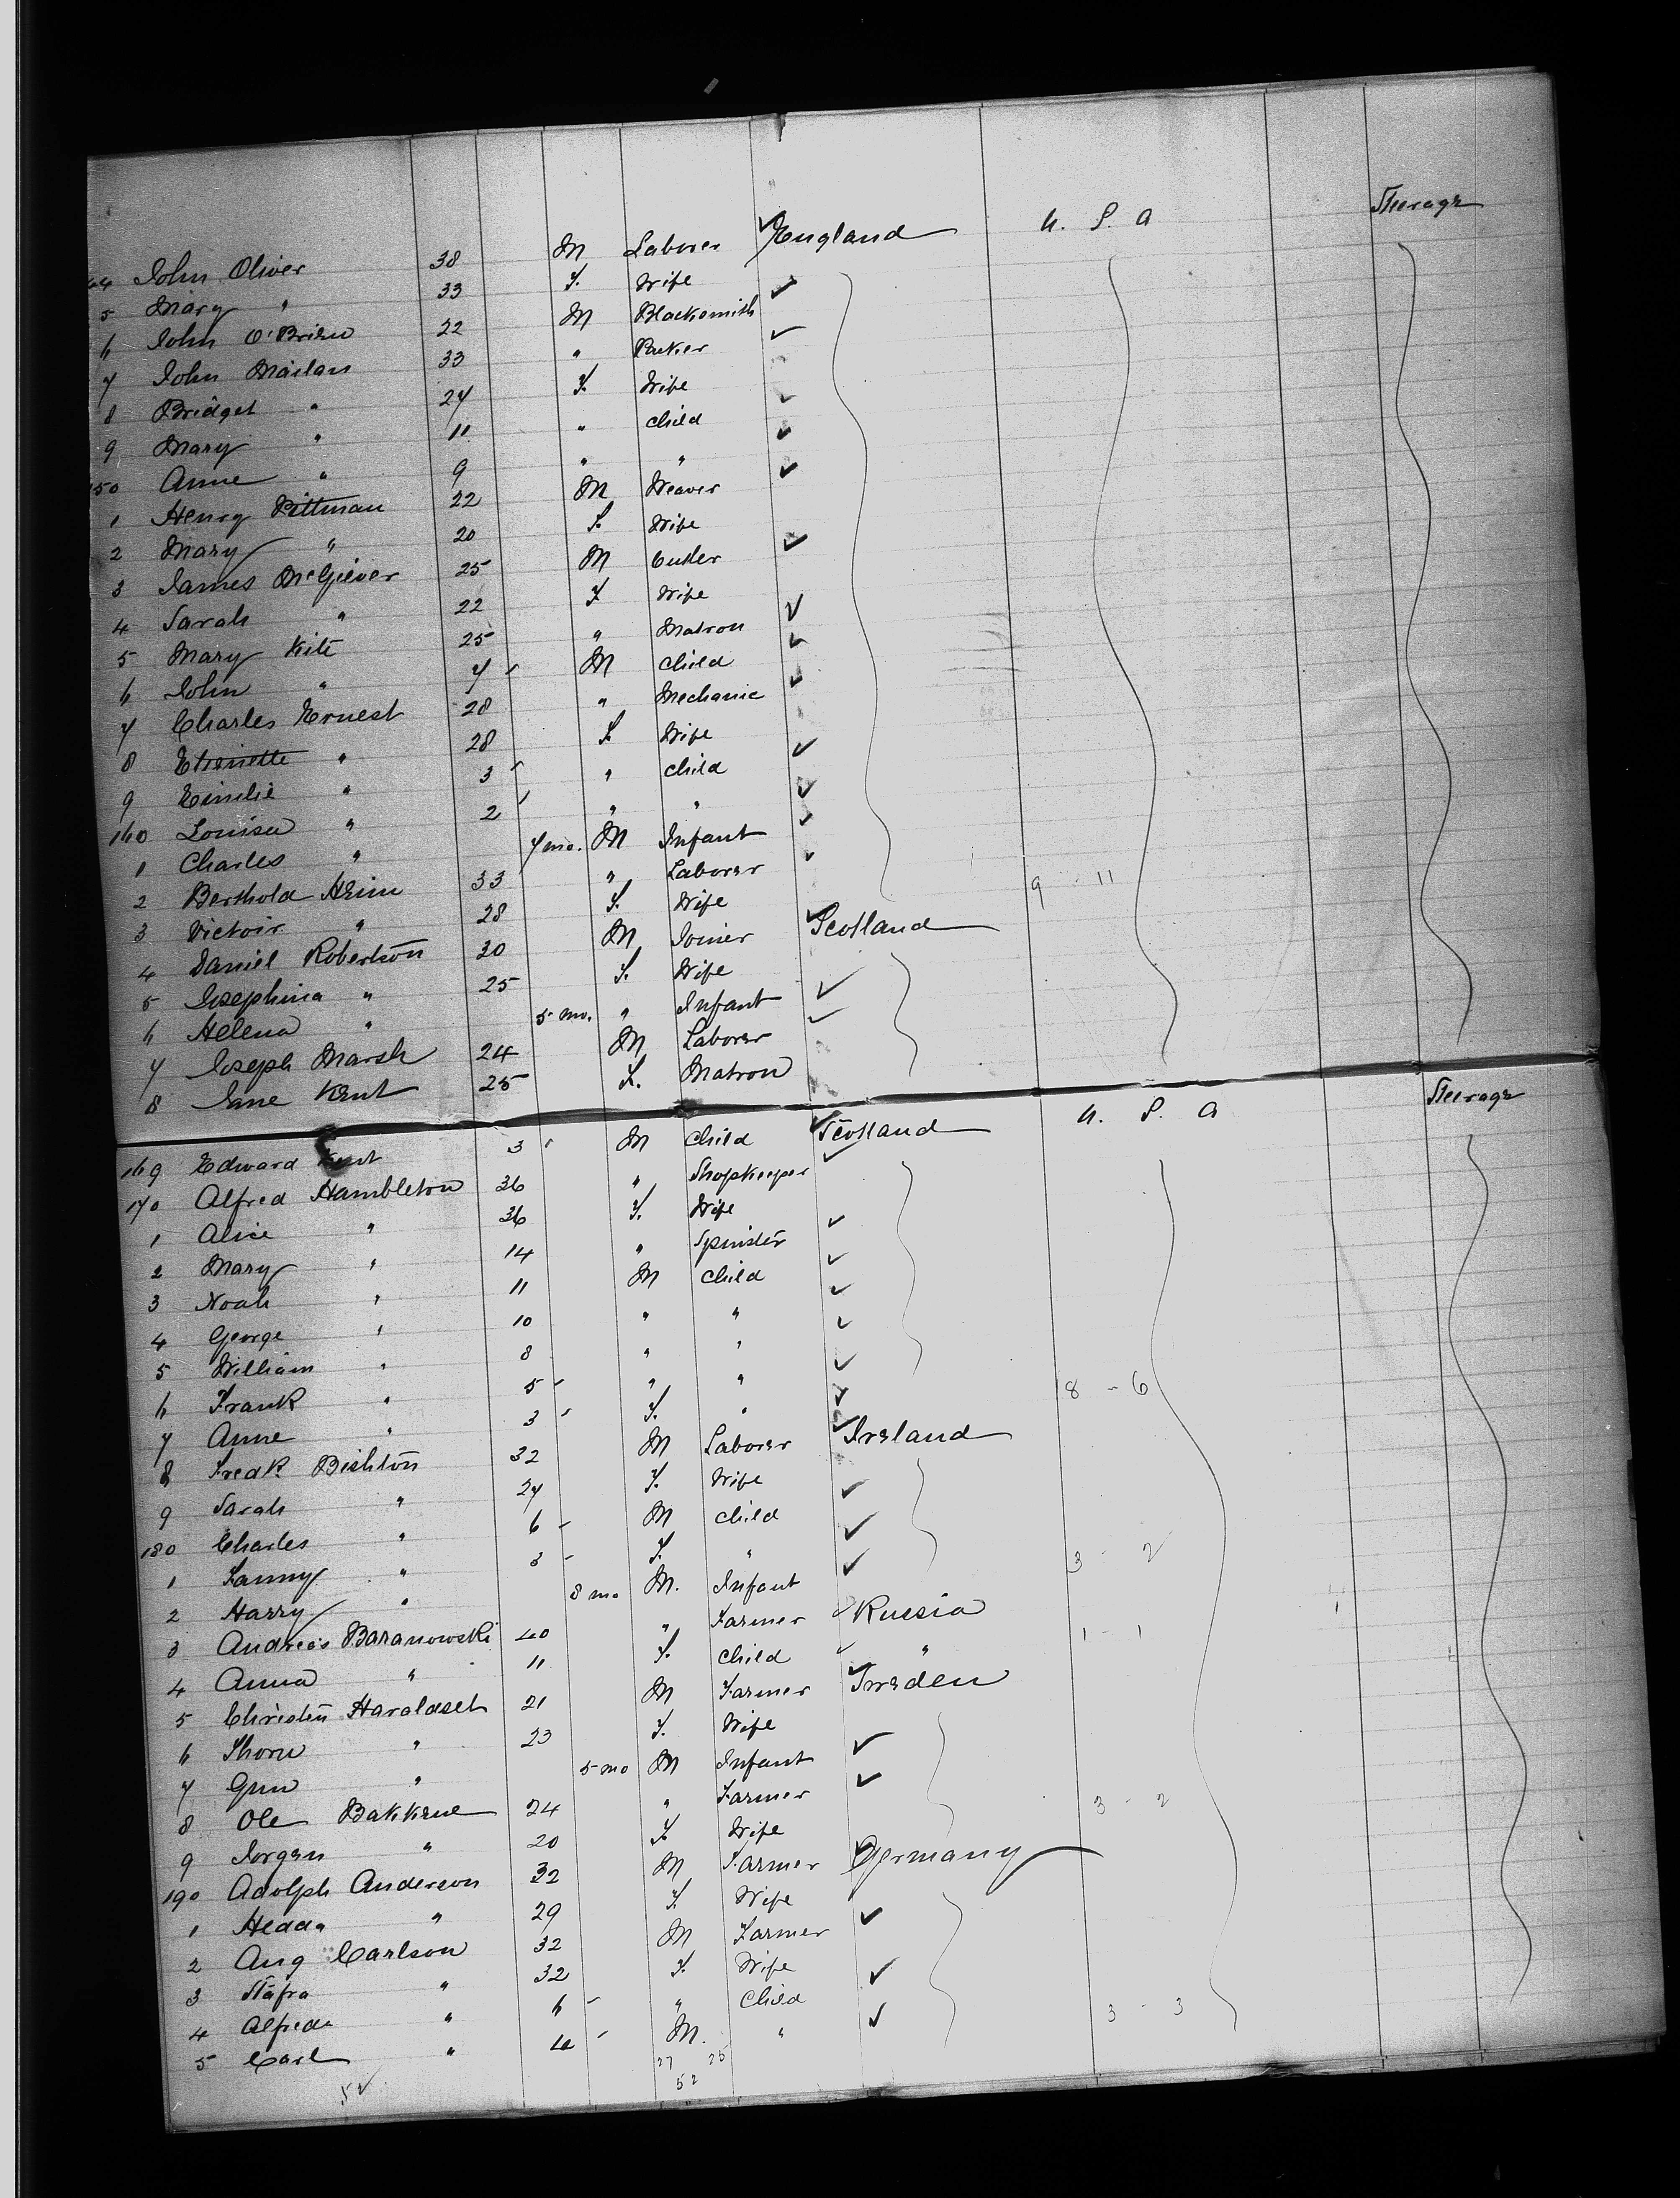 44 John Oliver 38 M Laborer England U. S. A Steerage
5 Mary " 33 F. Wife
6 John O'Brien 22 M Blacksmith
7 John Mailan 33 "
8 Bridget " 27 F. Wife
9 Mary " 11 " child
150 Anne " 9 " "
1 Henry Pittman 22 M Weaver
2 Mary " 20 F. Wife
3 James McGiever 25 M Cutler
4 Sarah " 22 F Wife
5 Mary Kite 25 " Matron
6 John " 7 M child
7 Charles Ernest 28 " Mechanic
8 Etienette " 28 F. Wife
9 Emilie " 3 " child
160 Louisa " 2 " "
1 Charles " 7 mo. M Infant
2 Berthold Heim 33 " Laborer
3 Victoir " 28 F. Wife 9 - 11
4 Daniel Robertson 30 M Joiner Scotland
5 Josephina " 25 F. Wife
6 Helena " 5 mo. " Infant
7 Joseph Marsh 24 M Laborer
8 Jane Kent 25 F. Matron
169 Edward Kent 3 M Child Scotland U. S. A Steerage
170 Alfred Hambleton 36 " Shopkeeper
1 Alice " 36 F. Wife
2 Mary " 14 " Spinster
3 Noah " 11 M child
4 George " 10 " "
5 William " 8 " "
6 Frank " 5 " "
7 Anne " 3 F. " 8 - 6
8 Fredk Bishton 32 M Laborer Ireland
9 Sarah " 27 F. Wife
180 Charles " 6 M child
1 Fanny " 3 F. "
2 Harry " 8 mo M. Infant 3 - 2
3 Andreas Baranowski 40 " Farmer Russia
4 Anna " 11 F. child " 1 - 1
5 Christen Haraldset 21 M Farmer Sweden
6 Thorn " 23 F. Wife
7 Gun " 5 mo M Infant
8 Ole Bakkene 24 " Farmer
9 Jorgen " 20 F Wife 3 - 2
190 Adolph Anderson 32 M Farmer Germany
1 Hedda " 29 F. Wife
2 Aug Carlson 32 M Farmer
3 " 32 F. Wife
4 Alfreda " 6 " Child
5 Carl " M. " 3 - 3
27 25
52 52